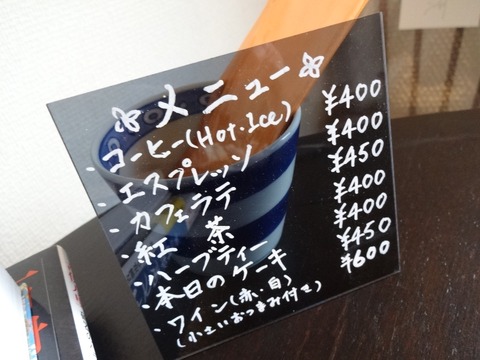 メニュー
・コーヒー(Hot・Ice) ¥400
・エスプレッソ ¥400
・カフェラテ ¥450
・紅 茶 ¥400
・ハーブティー ¥400
・本日のケーキ ¥450
・ワイン(赤・白) ¥600
(小さいおつまみ付き)